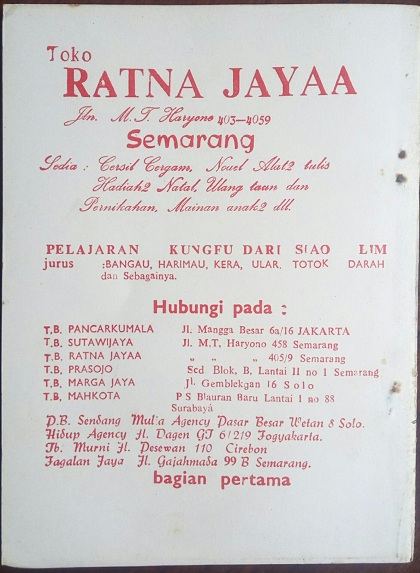 Toko
RATNA JAYAA
Jln. M.T. Haryono 403-4059
Semarang
Sedia : Cersil Cergam, Novel Alat2 tulis
Hadiah2 Natal, Ulang taun dan
Pernikahan, Mainan anak2 dll.
PELAJARAN KUNGFU DARI SIAO LIM
jurus :BANGAU, HARIMAU, KERA, ULAR, TOTOK DARAH
dan Sebagainya.
Hubungi pada :
T.B. PANCARKUMALA Jl. Mangga Besar 6a/16 JAKARTA
T.B. SUTAWIJAYA Jl. M.T. Haryono 458 Semarang
T.B. RATNA JAYAA „ „ 405/9 Semarang
T.B. PRASOJO Scd Blok, B, Lantai II no 1 Semarang
T.B. MARGA JAYA Jl. Gemblekgan 16 Solo
T.B. MAHKOTA P S Blauran Baru Lantai 1 no 88
Surabaya
P.B. Sendang Mulia Agency Pasar Besar Wetan 8 Solo.
Hidup Agency Jl. Dagen GT 6/219 Jogyakarta.
Tb. Murni Jl. Pesewan 110 Cirebon
Jagalan Jaya Jl. Gajahmada 99 B Semarang.
bagian pertama